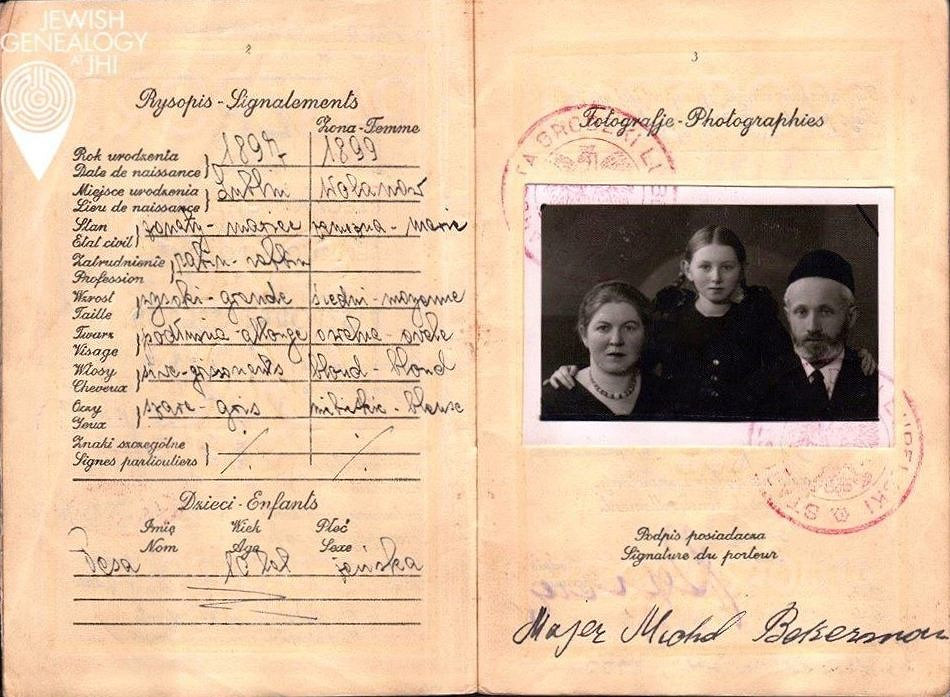 JEWISH
GENEALOGY
AT JHI
2
Rysopis - Signalements
Żona - Femme
Rok urodzenia
Date de naissance
1897 1899
Miejsce urodzenia
Lieu de naissance
Lublin Wolanów
Stan
Etat civil
żonaty - mariée zamężna - mariée
Zatrudnienie
Profession
rabin - rabbin
Wzrost
Taille
wysoki - grande średni - moyenne
Twarz
Visage
podłużna - allongé owalna - ovale
Włosy
Cheveux
siwe - grisonnants blond - blond
Oczy
Yeux
szare - gris niebieskie - bleus
Znaki szczególne
Signes particuliers
Dzieci - Enfants
Imię Wiek Płeć
Nom Age Sexe
Pesa lat żeńska
3
Fotografje - Photographies
GRODZKI
Podpis posiadacza
Signature du porteur
Majer Michel Bekerman